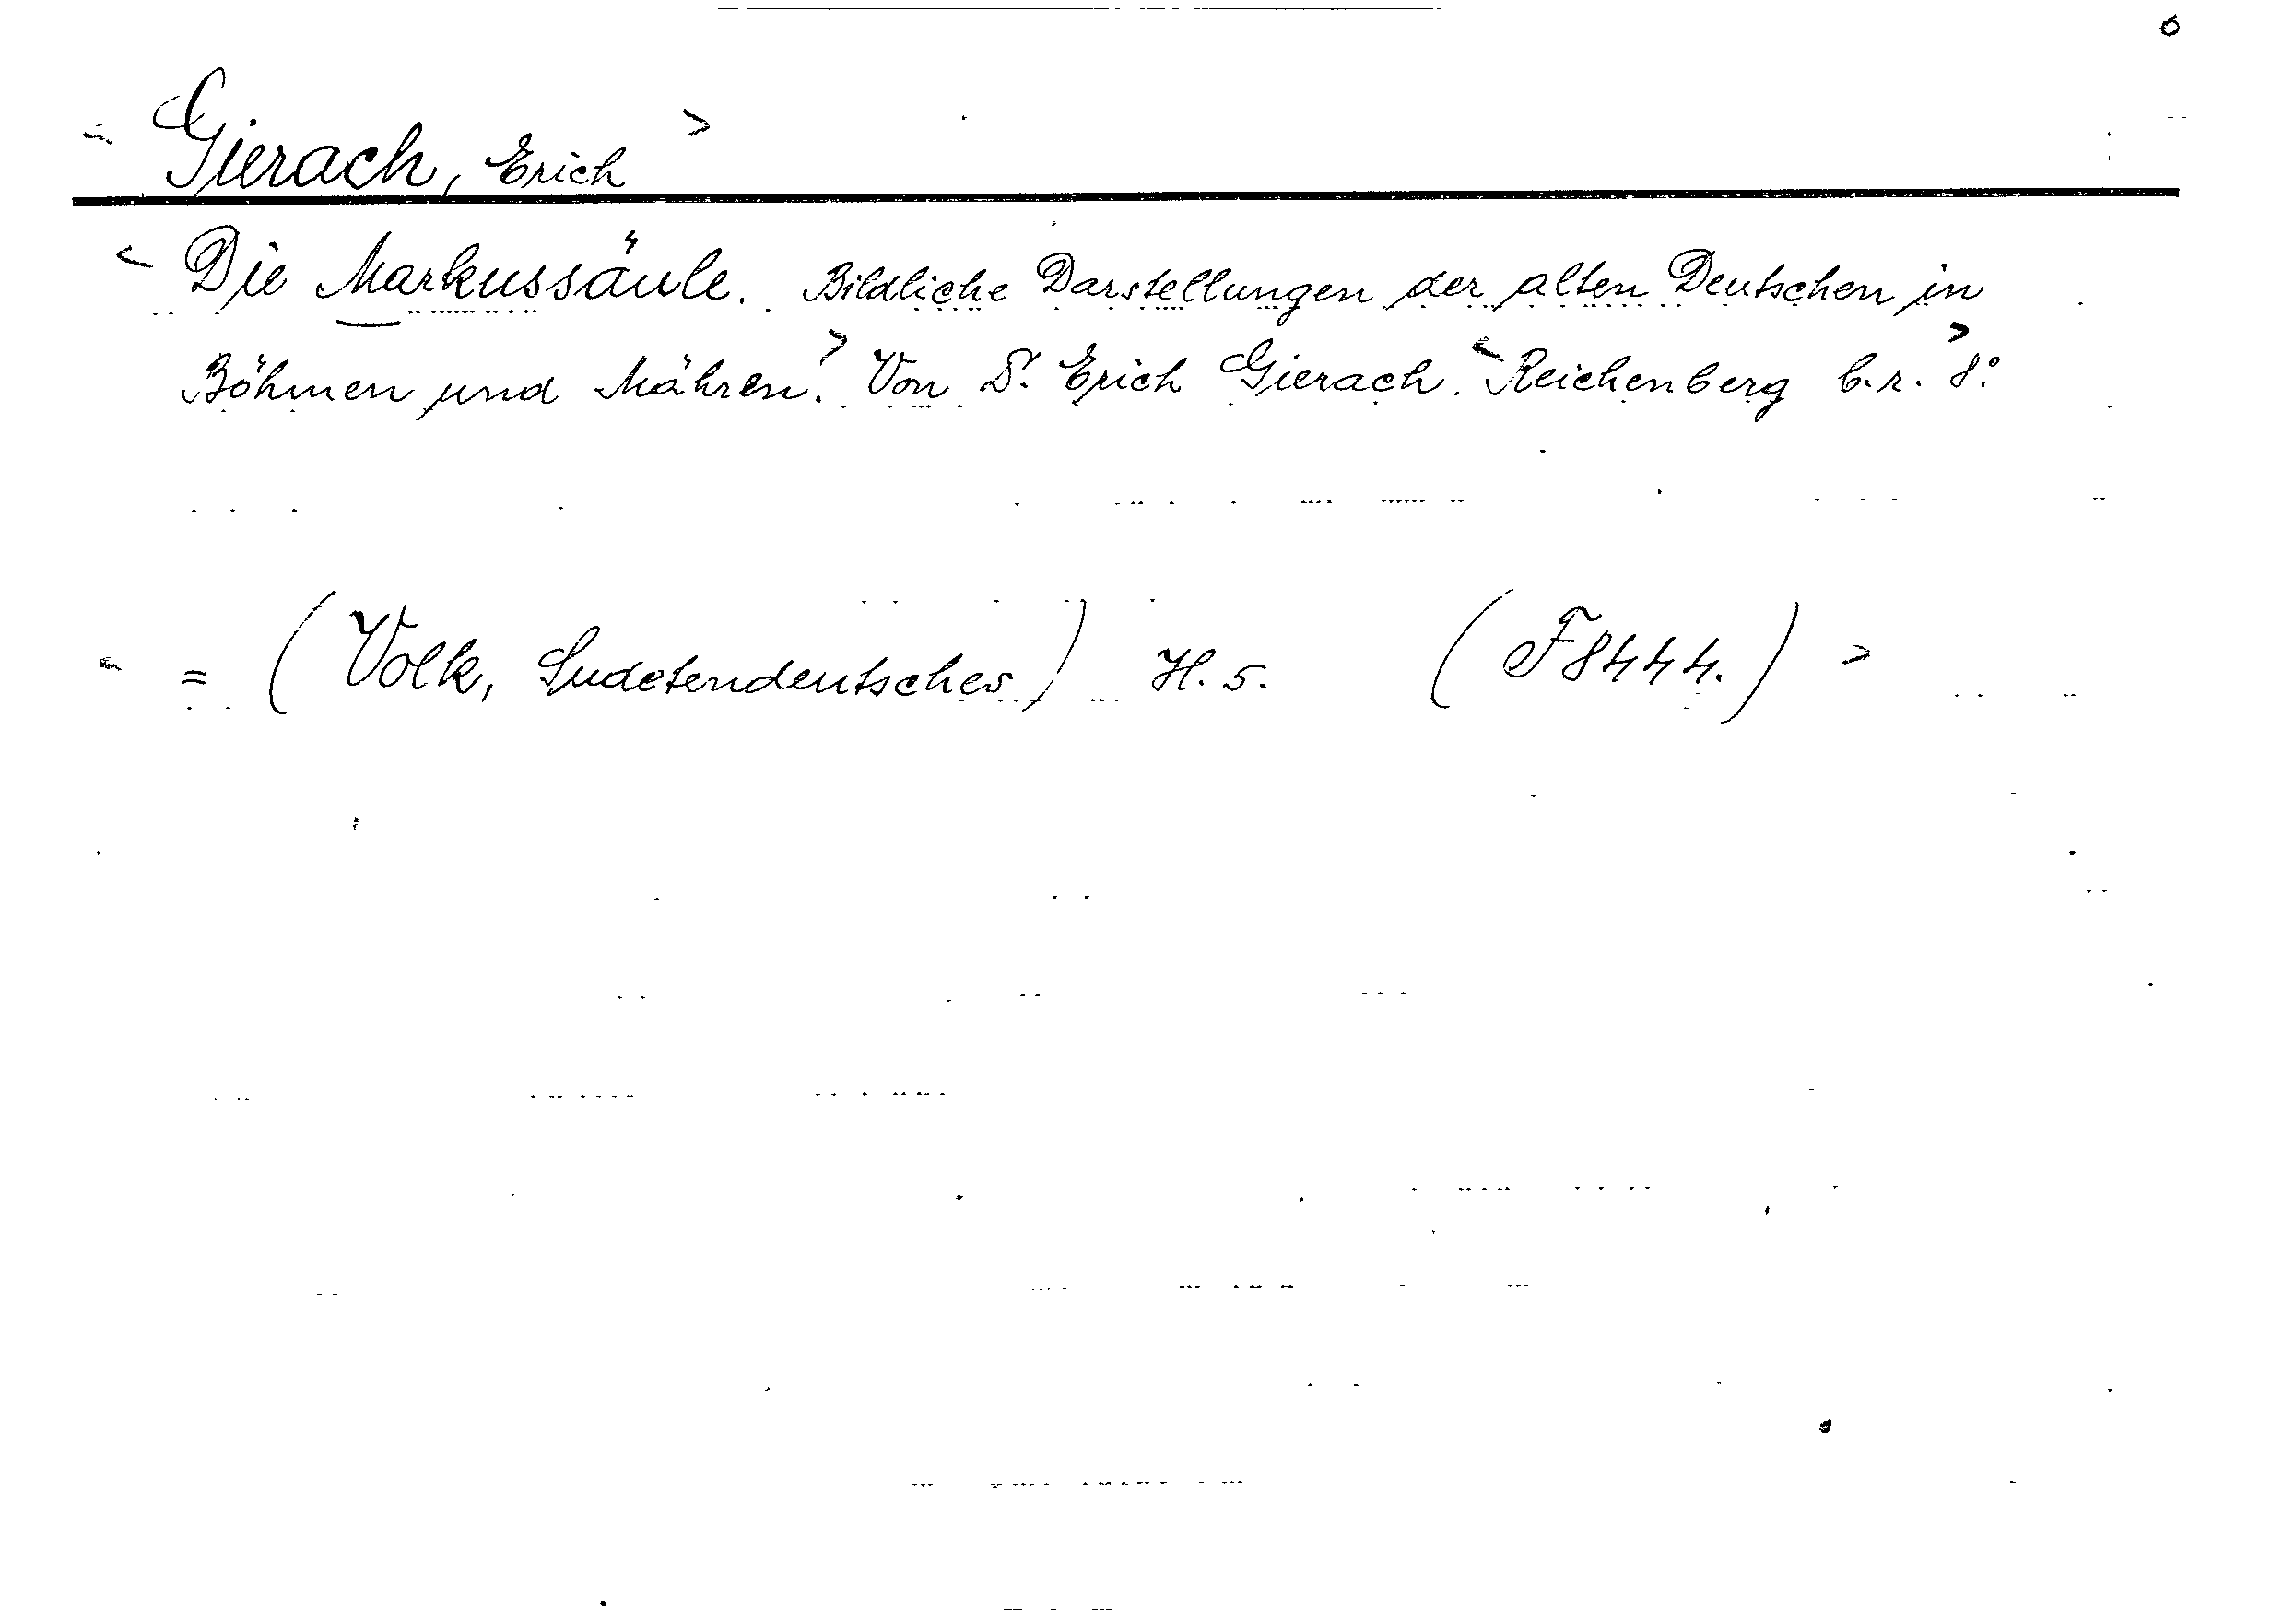 6
< Gierach, Erich >
< Die Markussäule. Bildliche Darstellungen der alten Deutschen in
Böhmen und Mähren.> Von Dr. Erich Gierach. <Reichenberg b.r. 8.°>
< = (Volk, Sudetendeutsches) H. 5. (F 8444.) >